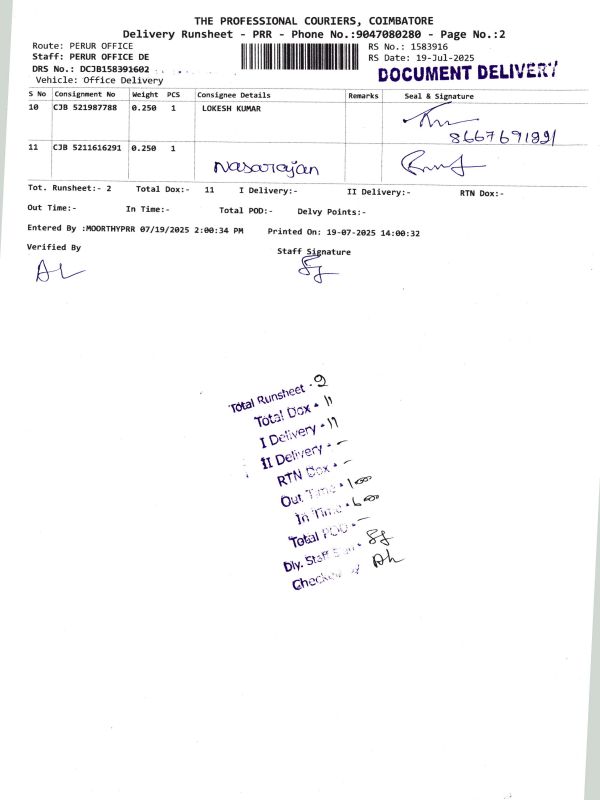 THE PROFESSIONAL COURIERS, COIMBATORE
Delivery Runsheet - PRR - Phone No.:9047080280 - Page No.:2
Route: PERUR OFFICE
RS No.: 1583916
Staff: PERUR OFFICE DE
RS Date: 19-Jul-2025
DRS No.: DCJB158391602
DOCUMENT DELIVERY
Vehicle: Office Delivery
S No Consignment No Weight PCS Consignee Details Remarks Seal & Signature
10 CJB 521987788 0.250 1 LOKESH KUMAR
8667691891
11 CJB 5211616291 0.250 1
Nasarajan
Tot. Runsheet:- 2 Total Dox:- 11 I Delivery:- II Delivery:- RTN Dox:-
Out Time:- In Time:- Total POD:- Delvy Points:-
Entered By :MOORTHYPRR 07/19/2025 2:00:34 PM Printed On: 19-07-2025 14:00:32
Verified By Staff Signature
Total Runsheet - 2
Total Dox - 11
I Delivery - 11
II Delivery - -
RTN Dox - -
Out Time - 1.00
In Time - 6.00
Total POD - -
Dly. Staff Sign -
Checked